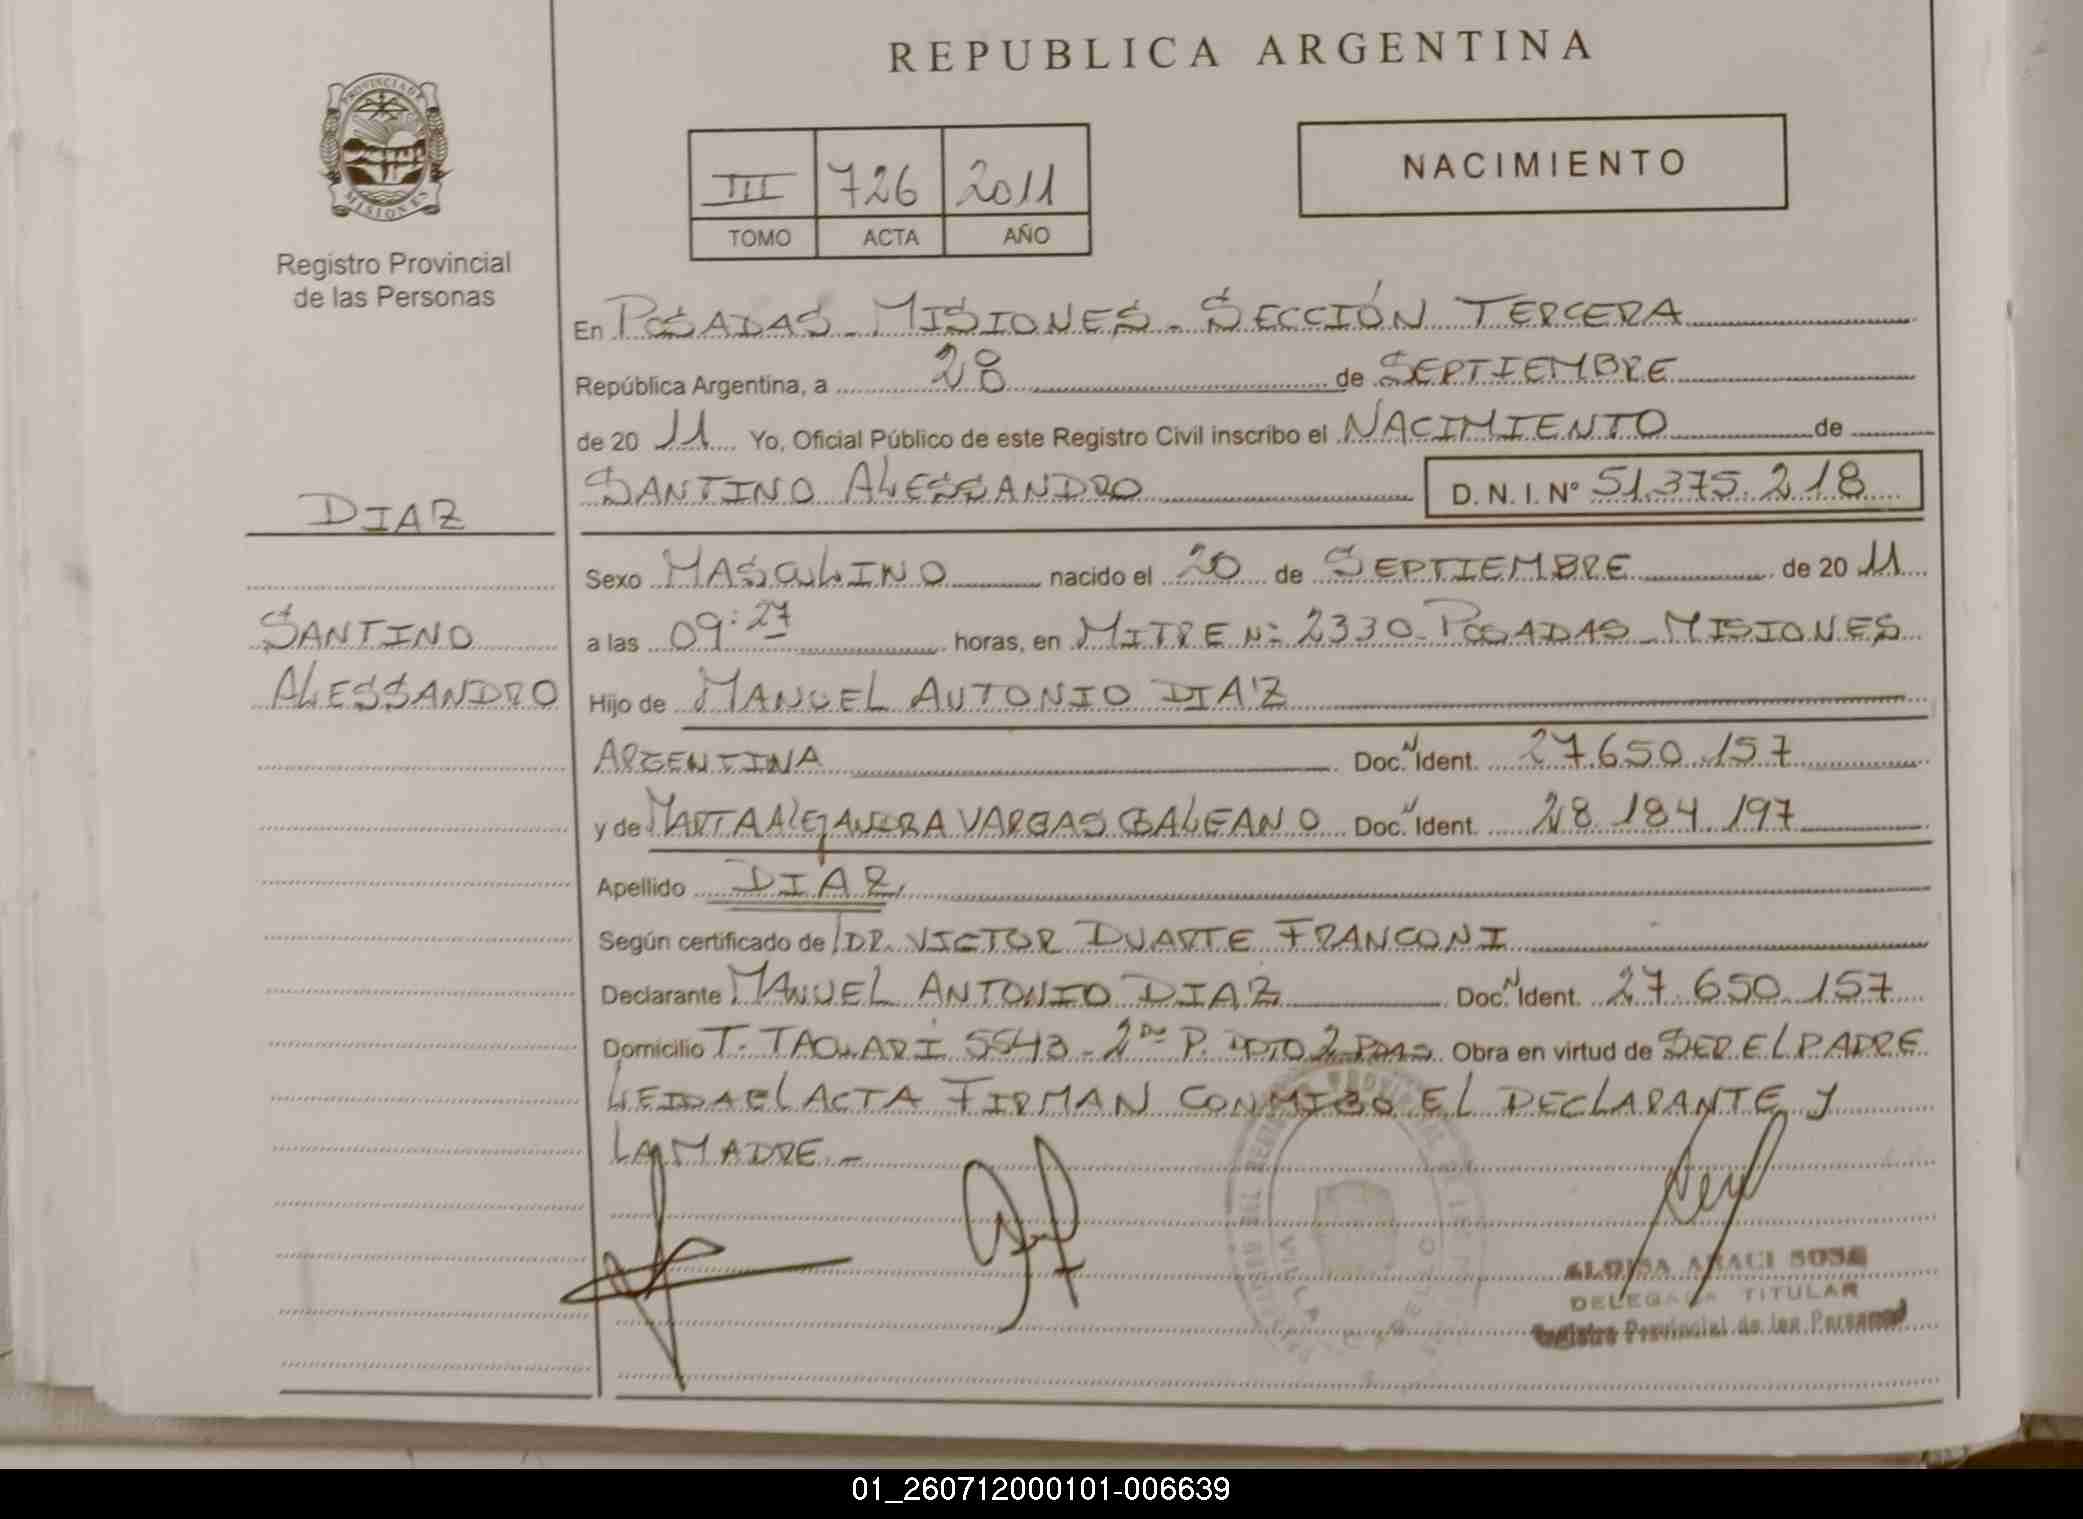 REPUBLICA ARGENTINA
PROVINCIA DE
MISIONES
Registro Provincial
de las Personas
III 726 2011
TOMO ACTA AÑO
NACIMIENTO
DIAZ
SANTINO
ALESSANDRO
En POSADAS - MISIONES - SECCIÓN TERCERA
República Argentina, a 28 de SEPTIEMBRE
de 20 11 Yo, Oficial Público de este Registro Civil inscribo el NACIMIENTO de
SANTINO ALESSANDRO D. N. I. Nº 51.375.218
Sexo MASCULINO nacido el 20 de SEPTIEMBRE de 20 11
a las 09:27 horas, en MITRE Nº 2330 - POSADAS - MISIONES
Hijo de MANUEL ANTONIO DIAZ
ARGENTINA Doc. Ident. 27.650.157
y de MARTA ALEJANDRA VARGAS GALEANO Doc. Ident. 28.184.197
Apellido DIAZ
Según certificado de DR. VICTOR DUARTE FRANCONI
Declarante MANUEL ANTONIO DIAZ Doc. Ident. 27.650.157
Domicilio T. TACUARÍ 5543 - 2do P. DPTO 2 PDAS Obra en virtud de SER EL PADRE
LEIDA EL ACTA FIRMAN CONMIGO EL DECLARANTE Y
LA MADRE -
ARACI SOSA
DELEGADA TITULAR
Registro Provincial de las Personas
01_260712000101-006639